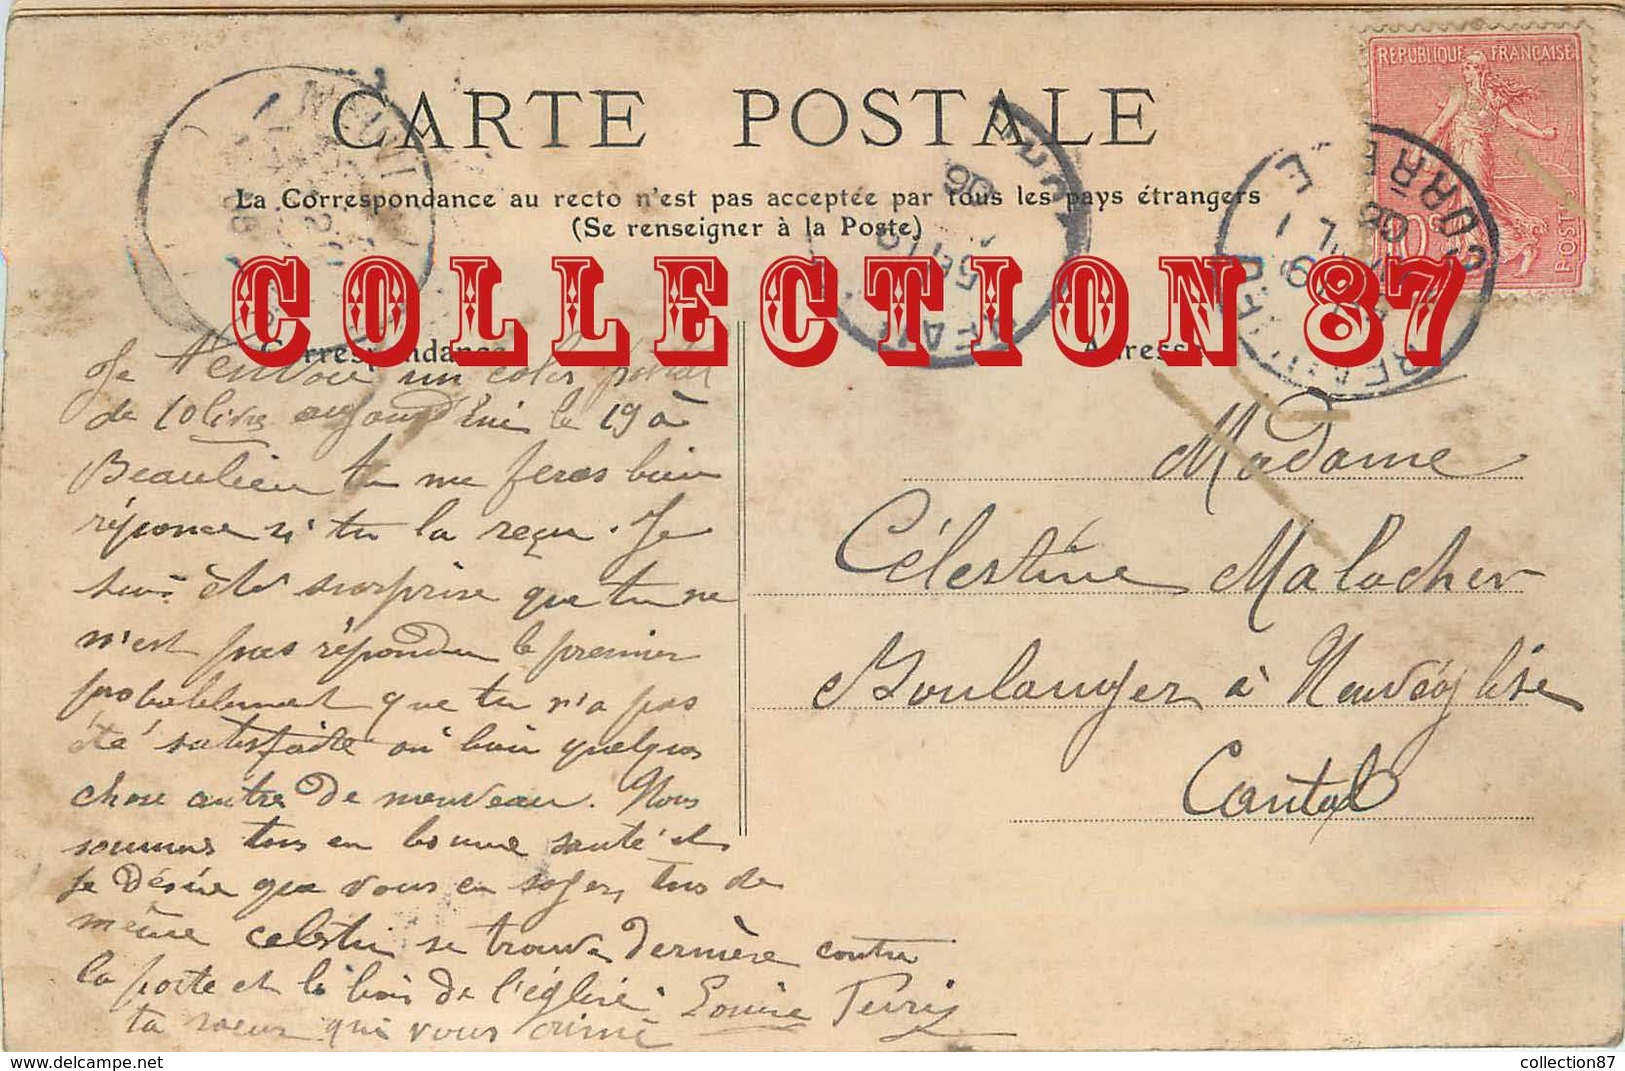 CARTE POSTALE
La Correspondance au recto n'est pas acceptée par tous les pays étrangers
(Se renseigner à la Poste)
REPUBLIQUE FRANÇAISE
10c
POSTES
COLLECTION 87
Correspondance
Adresse
Je t'envoie un colis postal
de 10 livre aujourd'hui le 19 à
Beaulieu tu me feras bien
réponce si tu la reçu. Je
suis été surprise que tu ne
m'est pas répondu le premier
probablement que tu n'a pas
été satisfaite ou bien quelque
chose autre de nouveau. Nous
sommes tous en bonne santé et
je désire que vous en soyer tous de
même celestin se trouve dernière contre
la porte et le bois de l'églisé. Louise
ta soeur qui vous aime
Madame
Célestine Malacher
Boulanger à Neuvéglise
Cantal
collection87